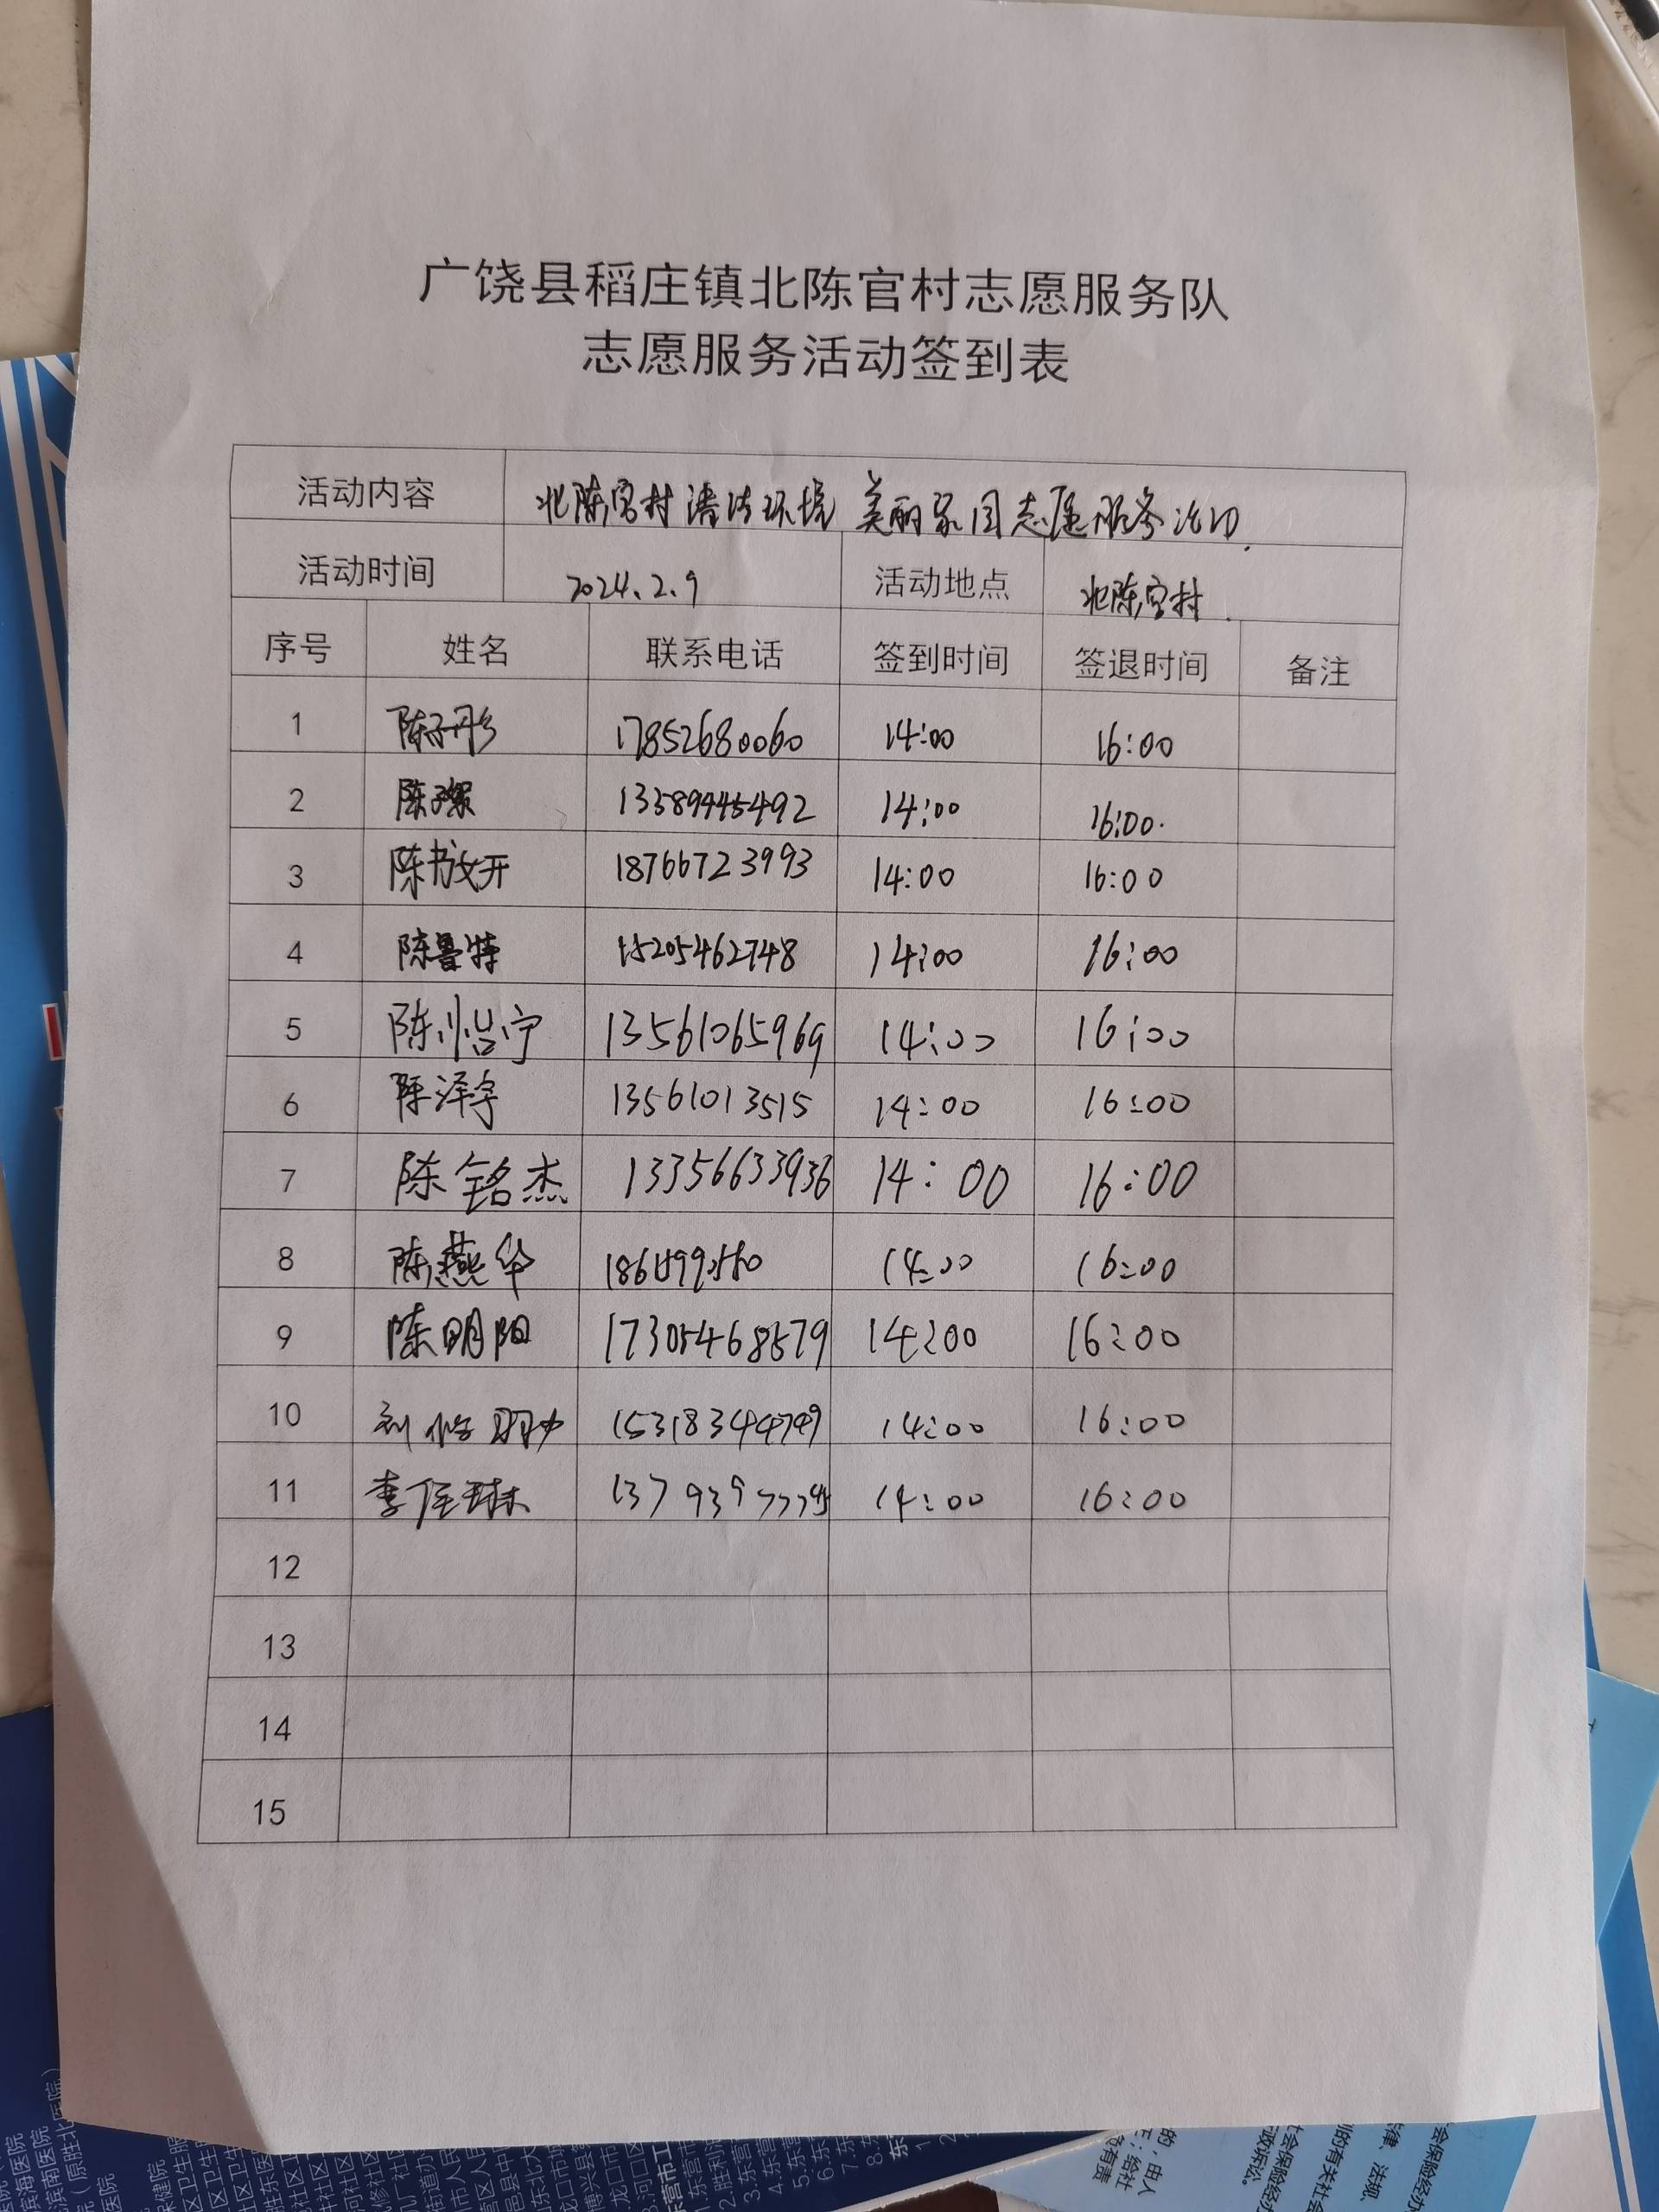 广饶县稻庄镇北陈官村志愿服务队
志愿服务活动签到表
活动内容 北陈官村清洁环境 美丽家园志愿服务活动.
活动时间 2024.2.9 活动地点 北陈官村.
序号 姓名 联系电话 签到时间 签退时间 备注
1 陈子彤 17852680060 14:00 16:00
2 陈 14:00 16:00.
3 陈 18766723993 14:00 16:00
4 陈鲁特 15205462748 14:00 16:00
5 陈怡宁 13561065969 14:00 16:00
6 陈泽宇 13561013515 14:00 16:00
7 陈铭杰 13356633936 14:00 16:00
8 陈燕华 14:00 16:00
9 陈明阳 17305468579 14:00 16:00
10 刘 14:00 16:00
11 李佳琳 14:00 16:00
12
13
14
15